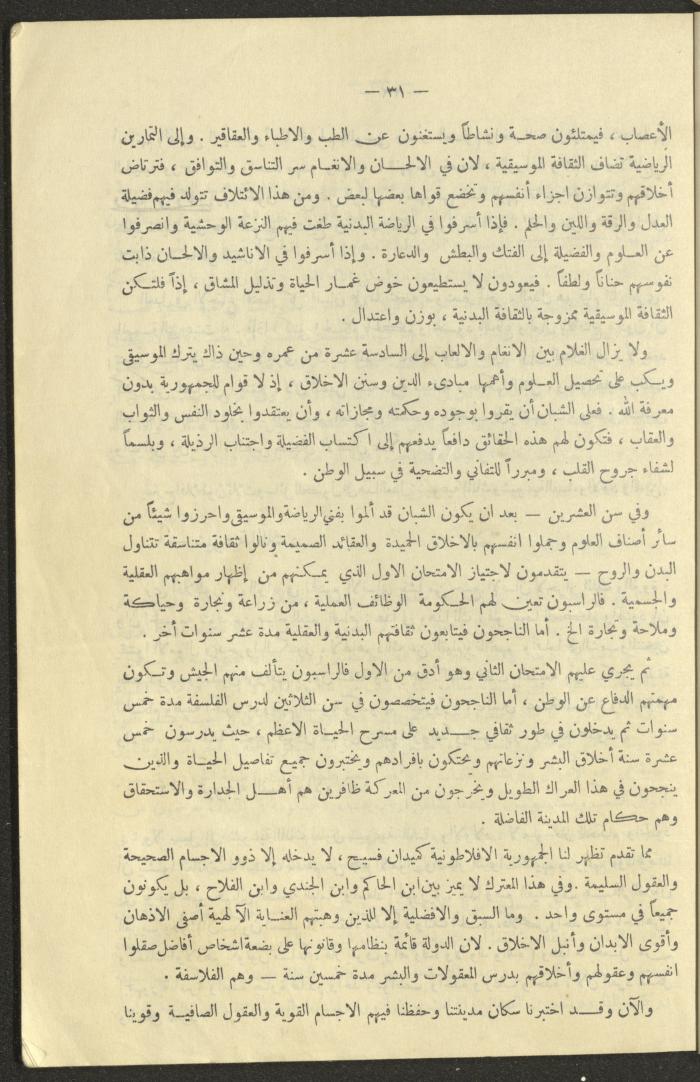 — ٣١ —
الأعصاب ، فيمتلئون صحة ونشاطاً ويستغنون عن الطب والاطباء والعقاقير . وإلى التمارين
الرياضية تضاف الثقافة الموسيقية ، لان في الالحان والانغام سر التناسق والتوافق ، فترتاض
أخلاقهم وتتوازن اجزاء أنفسهم وتخضع قواها بعضها لبعض . ومن هذا الائتلاف تتولد فيهم فضيلة
العدل والرقة واللين والحلم . فإذا أسرفوا في الرياضة البدنية طغت فيهم النزعة الوحشية وانصرفوا
عن العلوم والفضيلة إلى الفتك والبطش والدعارة . وإذا أسرفوا في الاناشيد والالحان ذابت
نفوسهم حناناً ولطفاً . فيعودون لا يستطيعون خوض غمار الحياة وتذليل المشاق ، إذاً فلتكن
الثقافة الموسيقية ممزوجة بالثقافة البدنية ، بوزن واعتدال .
ولا يزال الغلام بين الانغام والالعاب إلى السادسة عشرة من عمره وحين ذاك يترك الموسيقى
ويكب على تحصيل العلوم وأهمها مبادىء الدين وسنن الاخلاق ، إذ لا قوام للجمهورية بدون
معرفة الله . فعلى الشبان أن يقروا بوجوده وحكمته ومجازاته ، وأن يعتقدوا بخلود النفس والثواب
والعقاب ، فتكون لهم هذه الحقائق دافعاً يدفعهم إلى اكتساب الفضيلة واجتناب الرذيلة ، وبلسماً
لشفاء جروح القلب ، ومبرراً للتفاني والتضحية في سبيل الوطن .
وفي سن العشرين — بعد ان يكون الشبان قد ألموا بفني الرياضة والموسيقى واحرزوا شيئاً من
سائر أصناف العلوم وجملوا انفسهم بالاخلاق الحميدة والعقائد الصميمة ونالوا ثقافة متناسقة تتناول
البدن والروح — يتقدمون لاجتياز الامتحان الاول الذي يمكنهم من إظهار مواهبهم العقلية
والجسمية . فالراسبون تعين لهم الحكومة الوظائف العملية ، من زراعة ونجارة وحياكة
وملاحة وتجارة الخ . أما الناجحون فيتابعون ثقافتهم البدنية والعقلية مدة عشر سنوات أخر .
ثم يجري عليهم الامتحان الثاني وهو أدق من الاول فالراسبون يتألف منهم الجيش وتكون
مهمتهم الدفاع عن الوطن ، أما الناجحون فيتخصصون في سن الثلاثين لدرس الفلسفة مدة خمس
سنوات ثم يدخلون في طور ثقافي جديد على مسرح الحياة الاعظم ، حيث يدرسون خمس
عشرة سنة أخلاق البشر ونزعاتهم ويحتكون بافرادهم ويختبرون جميع تفاصيل الحياة والذين
ينجحون في هذا العراك الطويل ويخرجون من المعركة ظافرين هم أهل الجدارة والاستحقاق
وهم حكام تلك المدينة الفاضلة .
مما تقدم تظهر لنا الجمهورية الافلاطونية كميدان فسيح ، لا يدخله إلا ذوو الاجسام الصحيحة
والعقول السليمة . وفي هذا المعترك لا يميز بين ابن الحاكم وابن الجندي وابن الفلاح ، بل يكونون
جميعاً في مستوى واحد . وما السبق والافضلية إلا للذين وهبتهم العناية الآلهية أصفى الاذهان
وأقوى الابدان وأنبل الاخلاق . لان الدولة قائمة بنظامها وقانونها على بضعة اشخاص أفاضل صقلوا
انفسهم وعقولهم وأخلاقهم بدرس المعقولات والبشر مدة خمسين سنة — وهم الفلاسفة .
والآن وقد اختبرنا سكان مدينتنا وحفظنا فيهم الاجسام القوية والعقول الصافية وقوينا